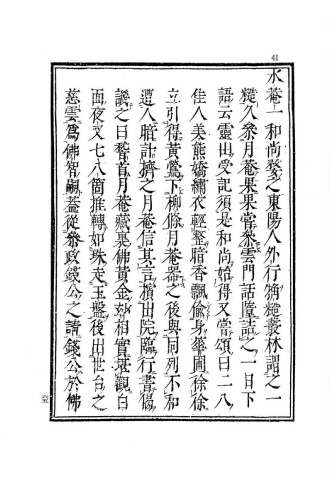 41
水菴一和尚婺之東陽人外行猶艴叢林謂之一
糙久參月菴果果嘗參雲門話墮詰之一日下
語云靈山受記須是和尚始得又嘗頌曰二八
佳人美態嬌繡衣輕整暗香飄偸身華圃徐徐
立引得黃鶯下柳條月菴器之後與同列不和
遭人暗計擠之月菴信其言擯出院臨行書偈
譏之曰稽首月菴藏裏佛黃金劫相實堪觀白
面夜叉七八箇推轉如珠走玉盤後出世台之
慈雲爲佛智嗣蓋從參政錢公之請錢公於佛